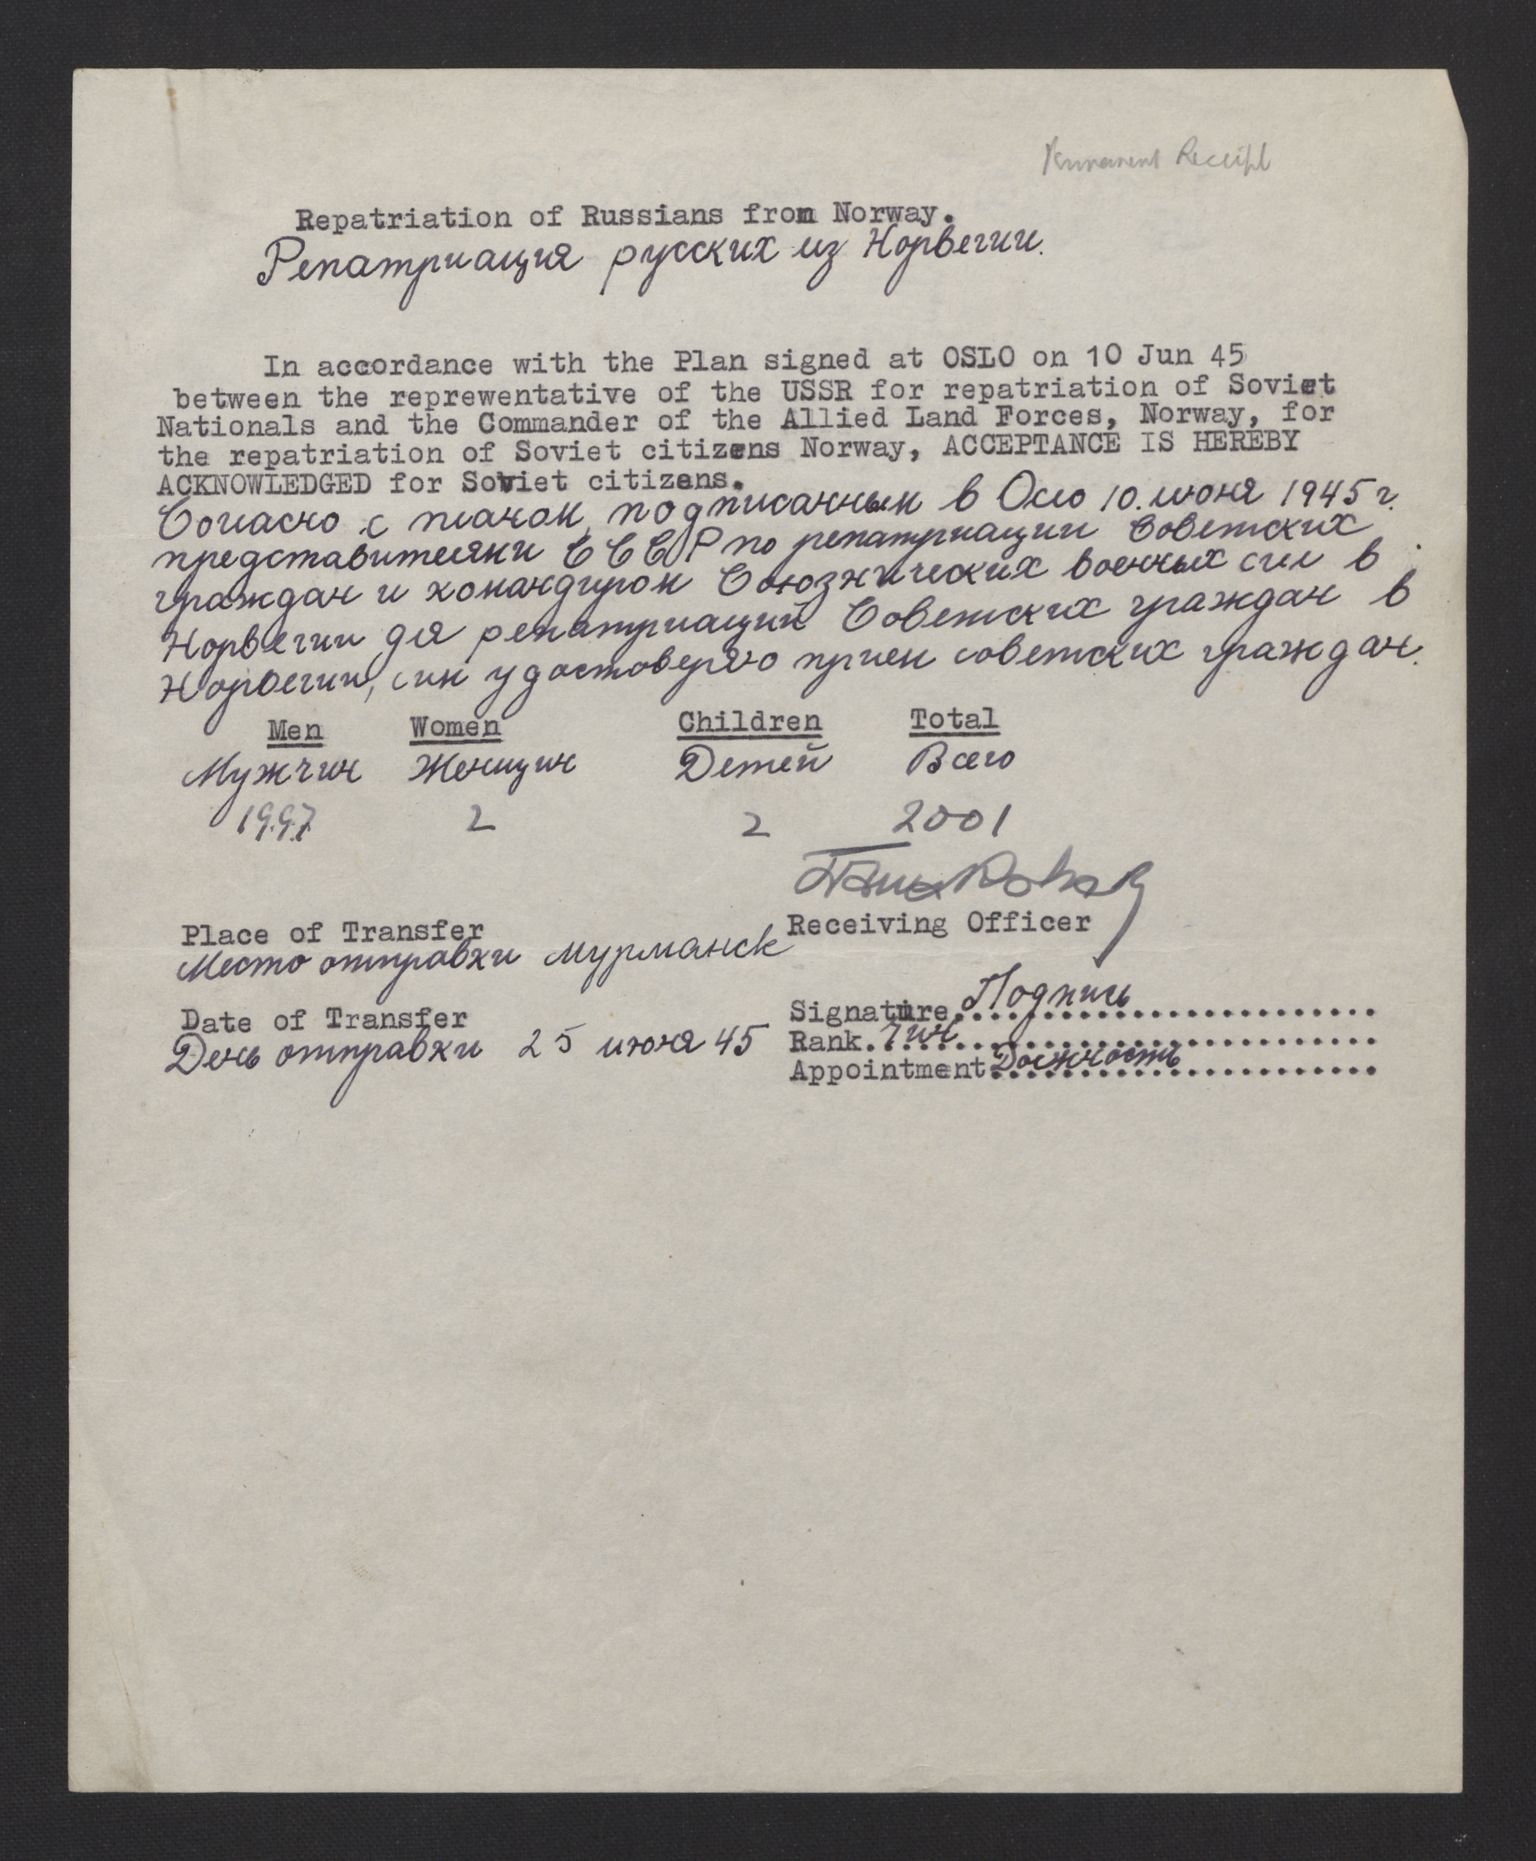 Permanent Receipt
Repatriation of Russians from Norway.
Репатриация русских из Норвегии.
In accordance with the Plan signed at OSLO on 10 Jun 45
between the reprewentative of the USSR for repatriation of Soviet
Nationals and the Commander of the Allied Land Forces, Norway, for
the repatriation of Soviet citizens Norway, ACCEPTANCE IS HEREBY
ACKNOWLEDGED for Soviet citizens.
Согласно с планом, подписанным в Осло 10. июня 1945 г.
представителями СССР по репатриации Советских
граждан и командиром Союзнических военных сил в
Норвегии для репатриаций Советских граждан в
Норвегии, сим удостоверяю прием советских граждан.
Men Women Children Total
Мужчин Женщин Детей Всего
1997 2 2 2001
Receiving Officer
Place of Transfer
Место отправки Мурманск
Signature Подпись
Date of Transfer
День отправки 25 июня 45
Rank. Чин
Appointment Должность